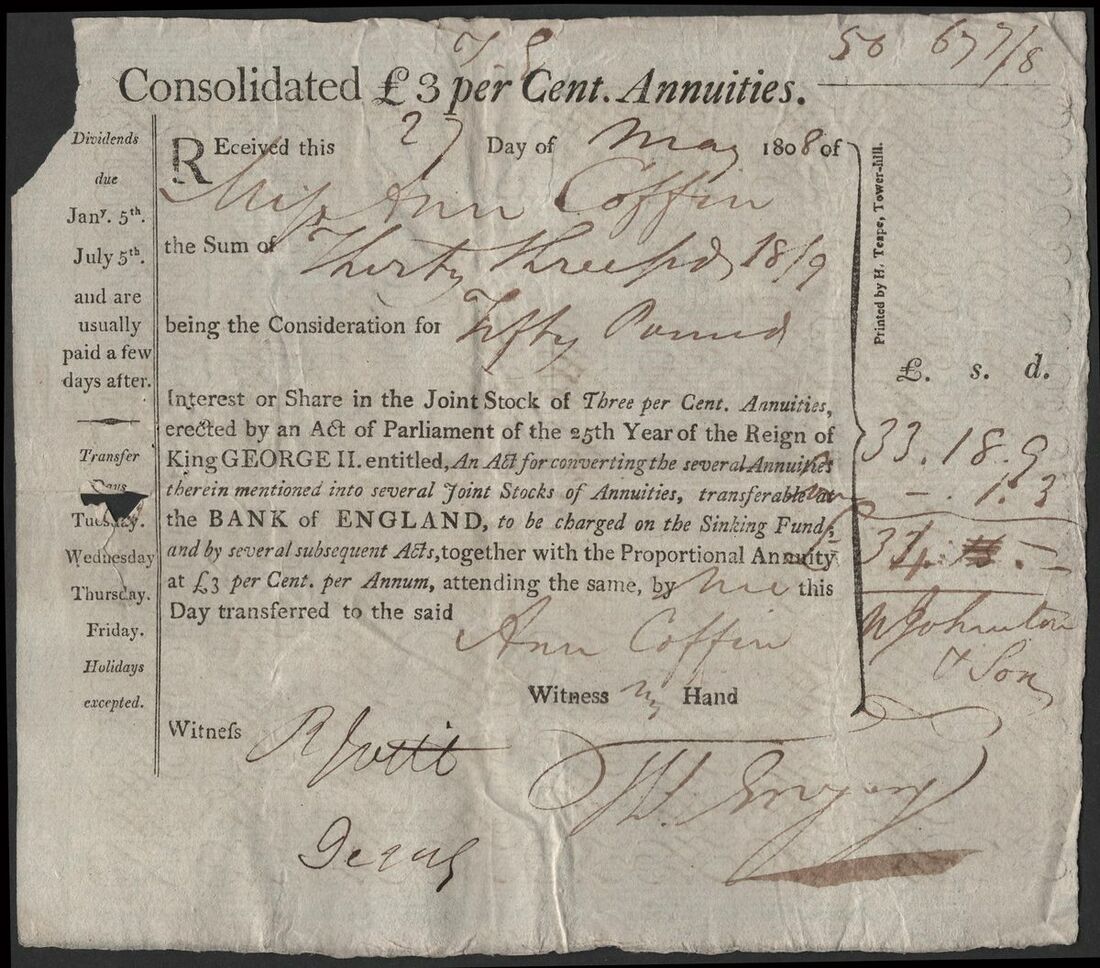 50 67 7/8
Consolidated £3 per Cent. Annuities.
Dividends
due
Janʸ. 5th.
July 5th.
and are
usually
paid a few
days after.
Transfer
Days
Tuesday.
Wednesday
Thursday.
Friday.
Holidays
excepted.
REceived this 27 Day of May 1808 of
Miss Ann Coffin
the Sum of Thirty Three pds 18/9
being the Consideration for Fifty Pound
Interest or Share in the Joint Stock of Three per Cent. Annuities,
erected by an Act of Parliament of the 25th Year of the Reign of
King GEORGE II. entitled, An Act for converting the several Annuities
therein mentioned into several Joint Stocks of Annuities, transferable at
the BANK of ENGLAND, to be charged on the Sinking Fund;
and by several subsequent Acts, together with the Proportional Annuity
at £3 per Cent. per Annum, attending the same, by me this
Day transferred to the said
Ann Coffin
Witness my Hand
Witneſs
Printed by H. Teape, Tower-hill.
£. s. d.
33. 18. 9
-. 1. 3
34. -. -
Johnston
& Son